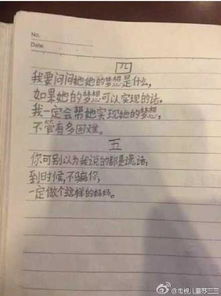 No.
Date.
四
我要问问她她的梦想是什么,
如果她的梦想可以实现的话,
我一定会帮她实现她的梦想,
不管有多困难。
五
你可别以为我说的都是谎话,
到时候,不骗你,
一定做个这样的妈妈。
@电视儿童莎二三